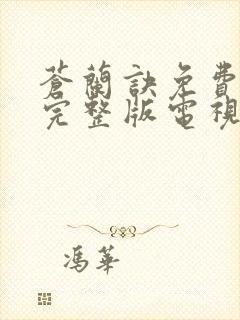 蒼蘭訣免費
完整版電視
馮華